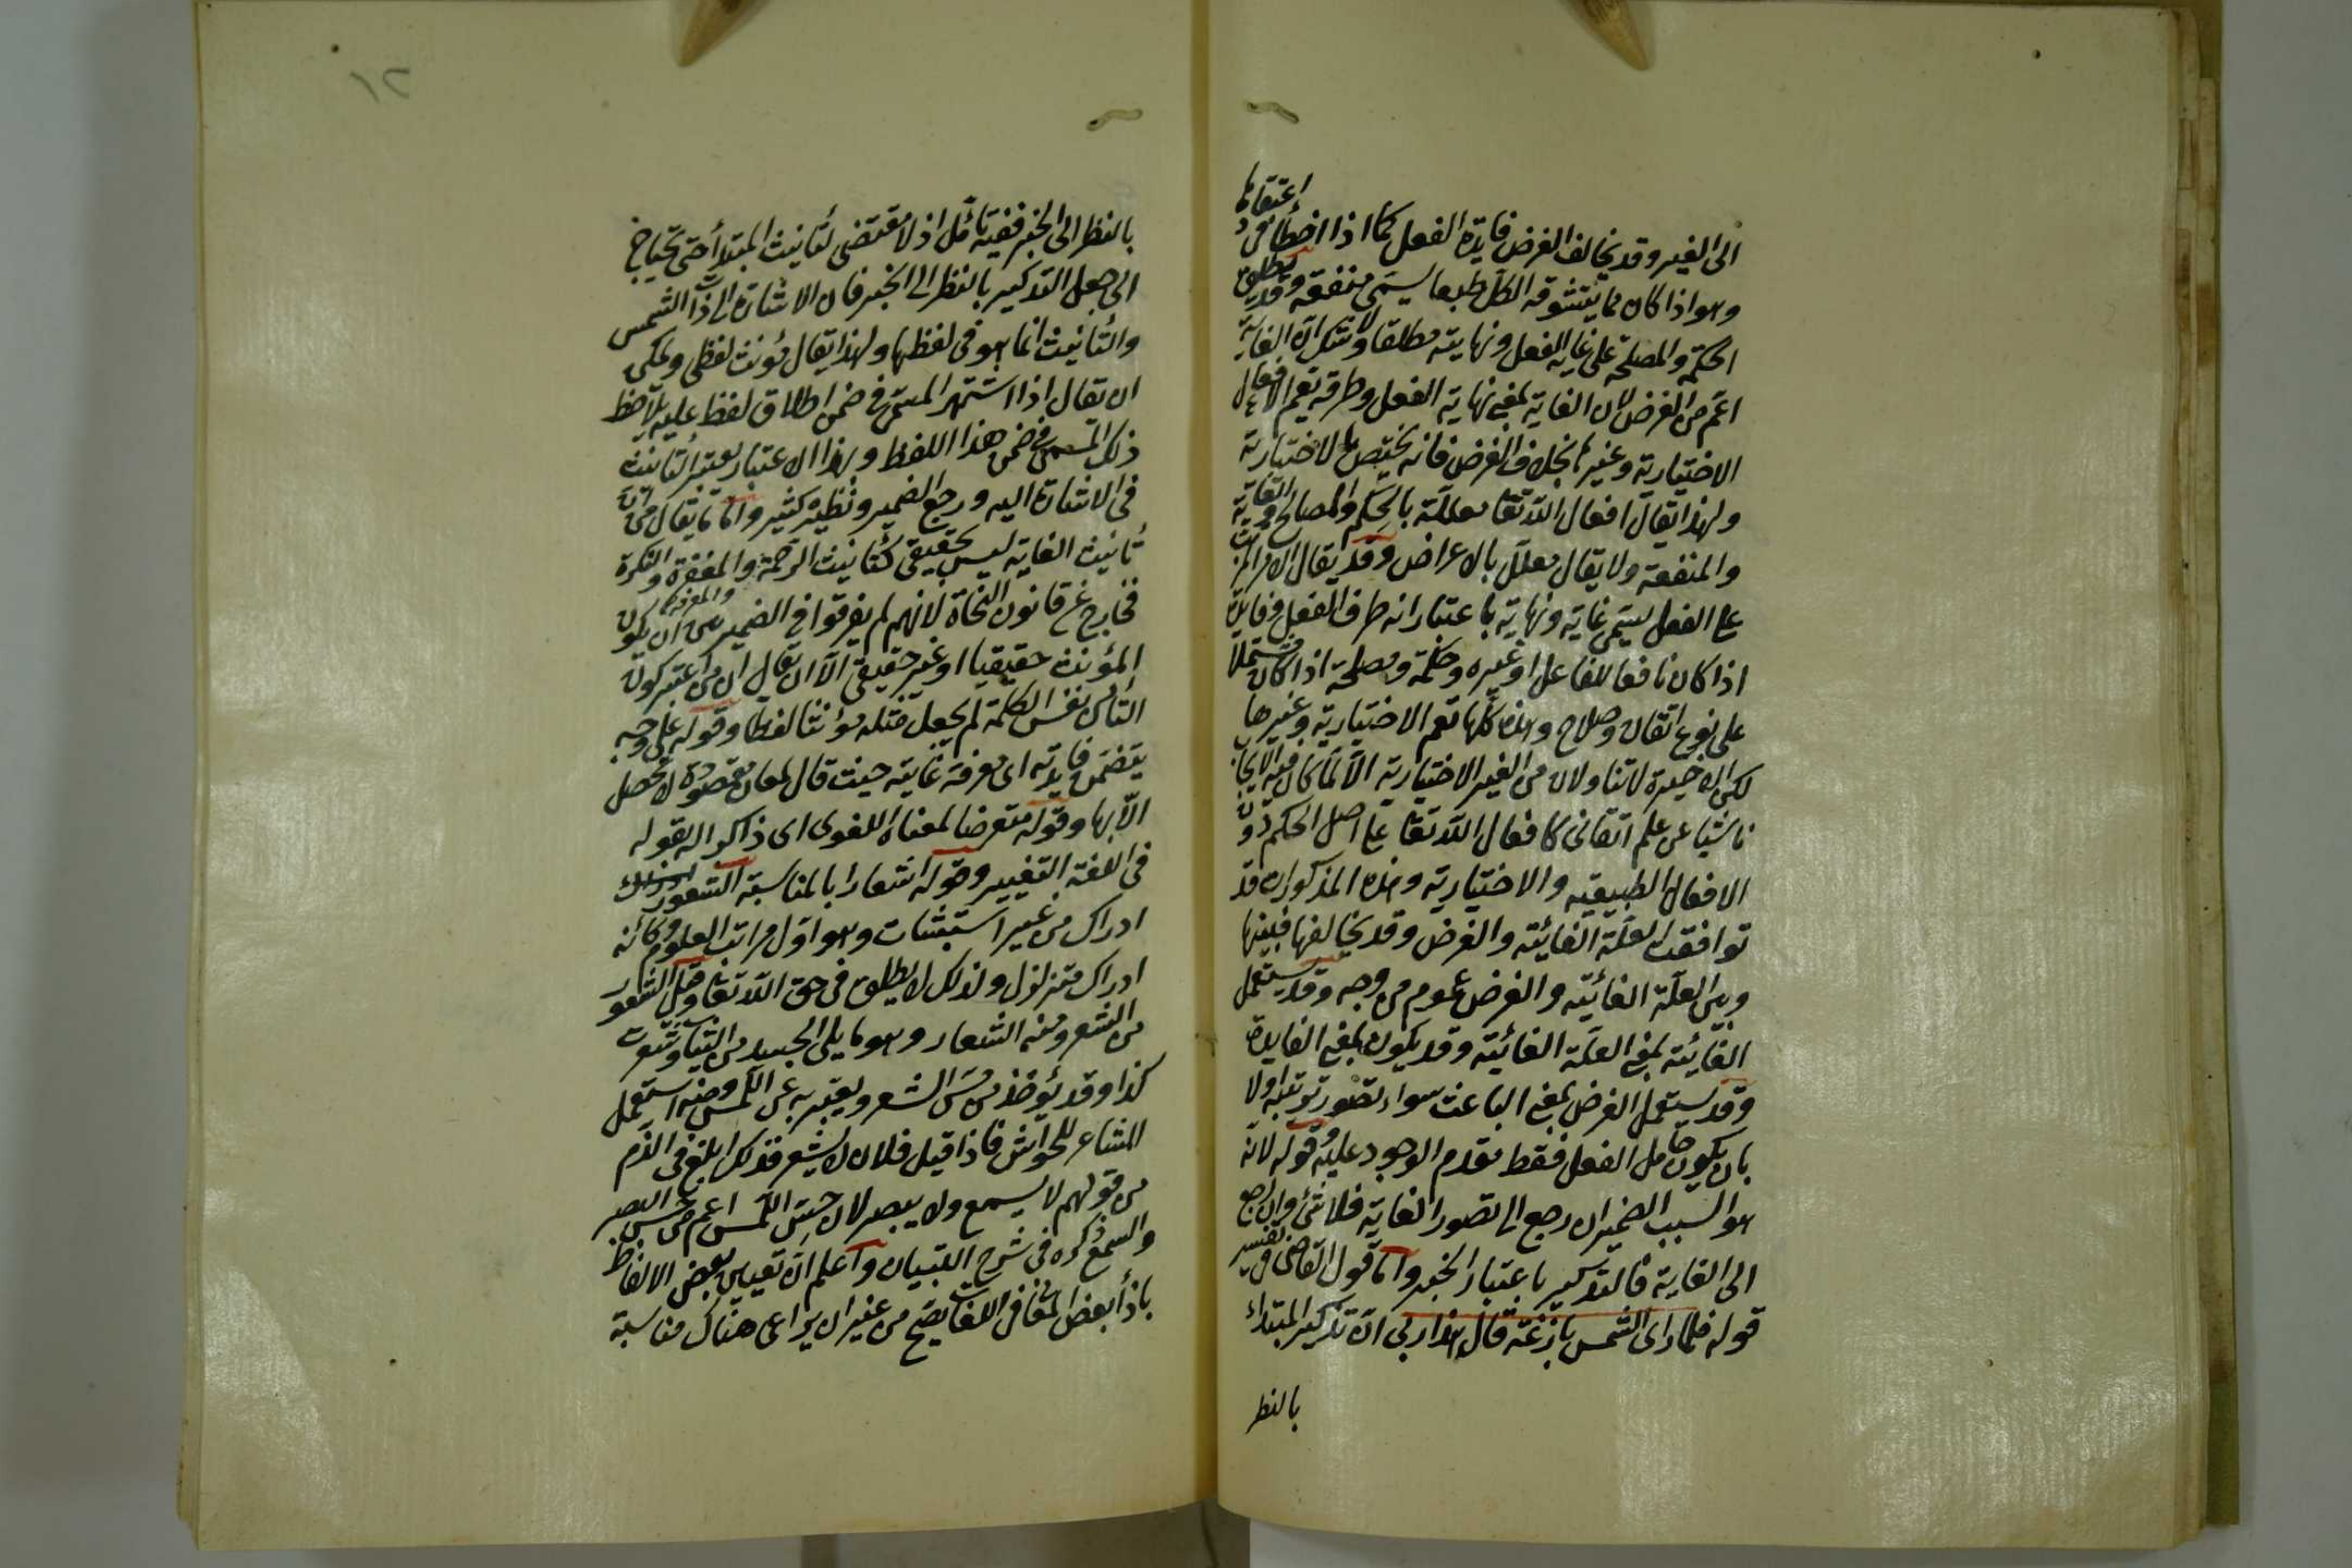 الى الغير وقد يخالف الغرض فايدة الفعل كما اذا اخطأ فى اعتقادها
وهو اذا كان مما يتشوقه الكل طبعا يسمى منفعة وقد يطلق
الحكمة والمصلحة على غاية الفعل ونهايته مطلقا ولا شك ان الغاية
اعم من الغرض لان الغاية بمعنى نهاية الفعل وطرفه تعم الافعال
الاختيارية وغيرها بخلاف الغرض فانه يختص بالاختيارية
ولهذا يقال افعال الله تعا معللة بالحكم والمصالح والغاية
والمنفعة ولا يقال معلل بالاعراض وقد يقال الامر المرتب
على الفعل يسمى غاية ونهاية باعتبار انه طرف الفعل وفايدة
اذا كان نافعا للفاعل او غيره وحكمة ومصلحة اذا كان مشتملا
على نوع اتقان وصلاح وهذه كلها تعم الاختيارية وغيرها
لكن الاخيرة لا تتناولان من الغير الاختيارية الا لما كان فيه الايجاب
ناشئا عن علم اتقانى كافعال الله تعا على اصل الحكم دون
الافعال الطبيعية والاختيارية وهذه المذكورات قد
توافقت العلة الغائية والغرض وقد يخالفها فبينها
وبين العلة الغائية والغرض عموم من وجه وقد يستعمل
الغائية بمعنى العلة الغائية وقد يكون بمعنى الفايدة
وقد يستعمل الغرض بمعنى الباعث سواء تصور ترتبه اولا
بان يكون حامل الفعل فقط مقدم الوجود عليه وقوله لانه
هو السبب الضمير ان رجع الى تصور الغاية فلا شئ وان رجع
الى الغاية فالتذكير باعتبار الخبر واما قول القاضى فى تفسير
قوله فلما راى الشمس بازغة قال هذا ربى ان تذكير المبتداء
بالنظر
١٢
بالنظر الى الخبر ففيه تأمل اذ لا مقتضى لتأنيث المبتدأ حتى يحتاج
الى جعل التذكير بالنظر الى الخبر فان الاشارة الى ذات الشمس
والتأنيث انما هو فى لفظها ولهذا يقال مؤنث لفظى ويمكن
ان يقال اذا اشتهر المسمى فى ضمن اطلاق لفظ عليه يلاحظ
ذلك المسمى فى ضمن هذا اللفظ وبهذا الاعتبار يعتبر التأنيث
فى الاشارة اليه ورجع الضمير ونظيره كثير واما ما يقال من ان
تأنيث الغاية ليس بحقيقى كتأنيث الرحمة والمغفرة والنكرة
والمعرفة
فخارج عن قانون النحاة لانهم لم يفرقوا فى الضمير بين ان يكون
المؤنث حقيقيا او غير حقيقى الا ان يقال ان من اعتبر كون
التاء من نفس الكلمة لم يجعل مثله مؤنثا لفظا وقوله على وجه
يتضمن فايدته اى معرفة غايته حيث قال لمعان مقصودة لا تحصل
الا بها وقوله متعرضا لمعناه اللغوى اى ذاكرا له بقوله
فى اللغة التغيير وقوله اشعارا بالمناسبة الشعور
ادراك من غير استثبات وهو اول مراتب العلوم وكأنه
ادراك متزلزل ولذلك لا يطلق فى حق الله تعا وقيل الشعور
من الشعر ومنه الشعار وهو ما يلى الجسد من الثياب وشعرت
كذا وقد يؤخذ من مس الشعر ويعبر به عن اللمس ومنه استعمل
المشاعر للحواس فاذا قيل فلان لا يشعر فذلك ابلغ فى الذم
من قولهم لا يسمع ولا يبصر لان حس اللمس اعم من حس البصر
والسمع ذكره فى شرح التبيان واعلم ان تعيين بعض الالفاظ
بازاء بعض المعانى فى اللغات يصح من غير ان يراعى هناك مناسبة